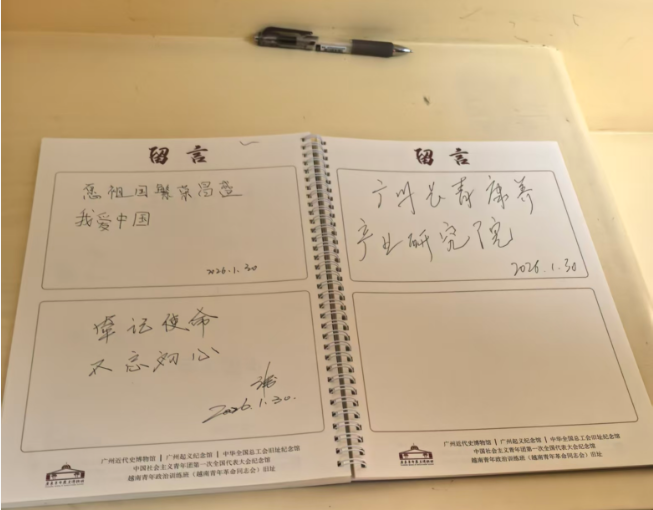 留言
愿祖国繁荣昌盛
我爱中国
2026.1.30
牢记使命
不忘初心
2026.1.30.
广州近代史博物馆 | 广州起义纪念馆 | 中华全国总工会旧址纪念馆
中国社会主义青年团第一次全国代表大会纪念馆
越南青年政治训练班(越南青年革命同志会)旧址
留言
广州长青康养
产业研究院
2026.1.30
广州近代史博物馆 | 广州起义纪念馆 | 中华全国总工会旧址纪念馆
中国社会主义青年团第一次全国代表大会纪念馆
越南青年政治训练班(越南青年革命同志会)旧址